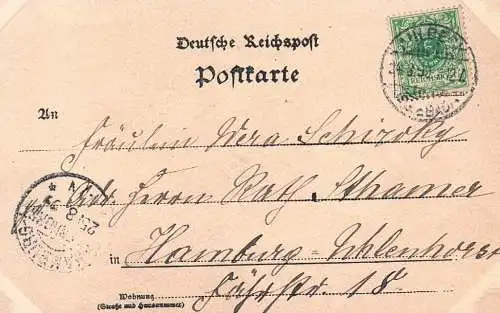 Deutsche Reichspost
Postkarte
An
Fräulein Vera Schirotzky
Adr. Herrn Rath. Sthamer
in Hamburg-Uhlenhorst
Fährstr. 18.
Wohnung
(Straße und Hausnummer)